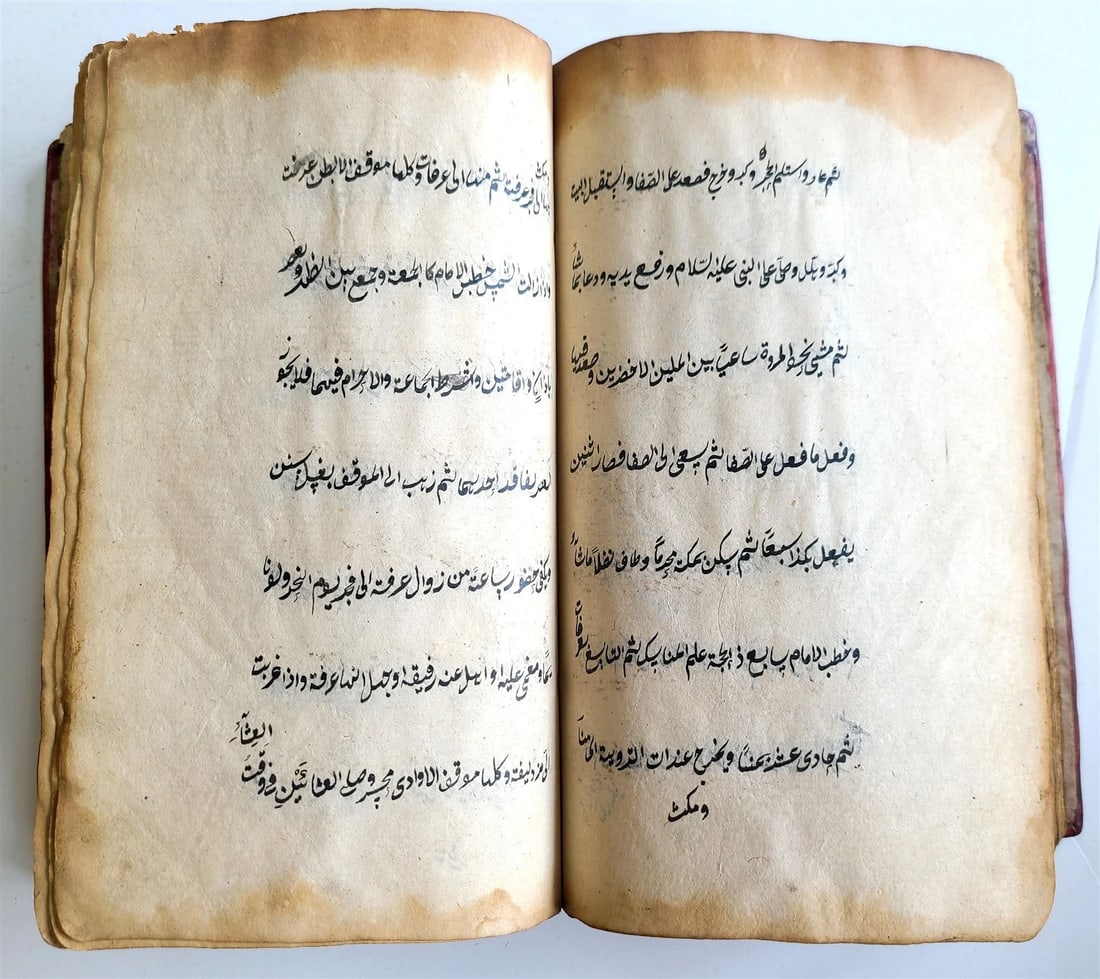 ثم عاد واستلم الحجر وكبر وخرج فصعد على الصفا واستقبل البيت
وكبر وهلل وصلى على النبى عليه السلام ورفع يديه ودعا بما شاء
ثم مشى نحو المروة ساعيا بين الميلين الاخضرين وصعد فيها
وفعل ما فعل على الصفا ثم يسعى الى الصفا فصار اثنين
يفعل هكذا سبعا ثم يسكن بمكة محرما وطاف نفلا ما شاء
وخطب الامام سابع ذى الحجة علم المناسك ثم التاسع بعرفات
ثم حادى عشر بمنا ويخرج غدات التروية الى منا
ومكث
بها الى فجر عرفة ثم منها الى عرفات وكلها موقف الا بطن عرفة
واذا زالت الشمس خطب الامام كالجمعة وجمع بين الظهر والعصر
باذان واقامتين وشرط الجماعة والاحرام فيهما فلا يجوز
العصر لفاقد احديهما ثم ذهب الى الموقف بغسل سنن
ويكفى حضور ساعة من زوال عرفة الى فجر يوم النحر ولو نا
ئما ومغمى عليه او اهل عنه رفيقه او جهل انها عرفة واذا غربت
الى مزدلفة وكلها موقف الا وادى محسر وصلى العشائين فى وقت
العشاء